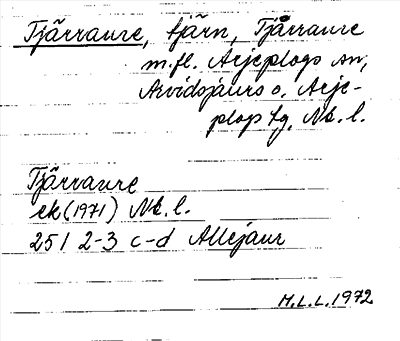 Tjärraure, tjärn, Tjärraure
m.fl. Arjeplogs sn,
Arvidsjaurs o. Arje-
plogs tg, Nb. l.
Tjärraure
ek (1971) Nb. l.
25 I 2-3 c-d Allejaur
M.L.L. 1972